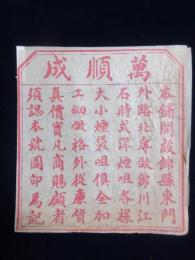 萬順成
本鋪開設錦縣東門
外路北專做錦川江
石時式煙咀各樣
大小煙袋咀俱全加
工細做格外從廉貨
真價實凡商賜顧者
須認本號圖印為記